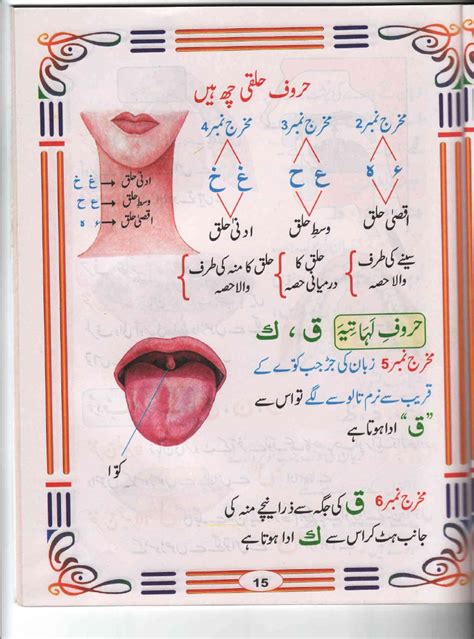 حروف حلقی چھ ہیں
مخرج نمبر2 مخرج نمبر3 مخرج نمبر4
ء ہ ع ح غ خ
اقصیٰ حلق وسطِ حلق ادنیٰ حلق
ادنیٰ حلق → غ خ
وسط حلق → ع ح
اقصیٰ حلق → ء ہ
سینے کی طرف والا حصہ
حلق کا درمیانی حصہ
حلق کا منہ کی طرف والا حصہ
حروفِ لہاتیہ ق ، ك
مخرج نمبر5 زبان کی جڑ جب کوّے کے
قریب سے نرم تالو سے لگے تو اس سے
”ق“ ادا ہوتا ہے
کوّا
مخرج نمبر6 ق کی جگہ سے ذرا نیچے منہ کی
جانب ہٹ کر اس سے ك ادا ہوتا ہے
15